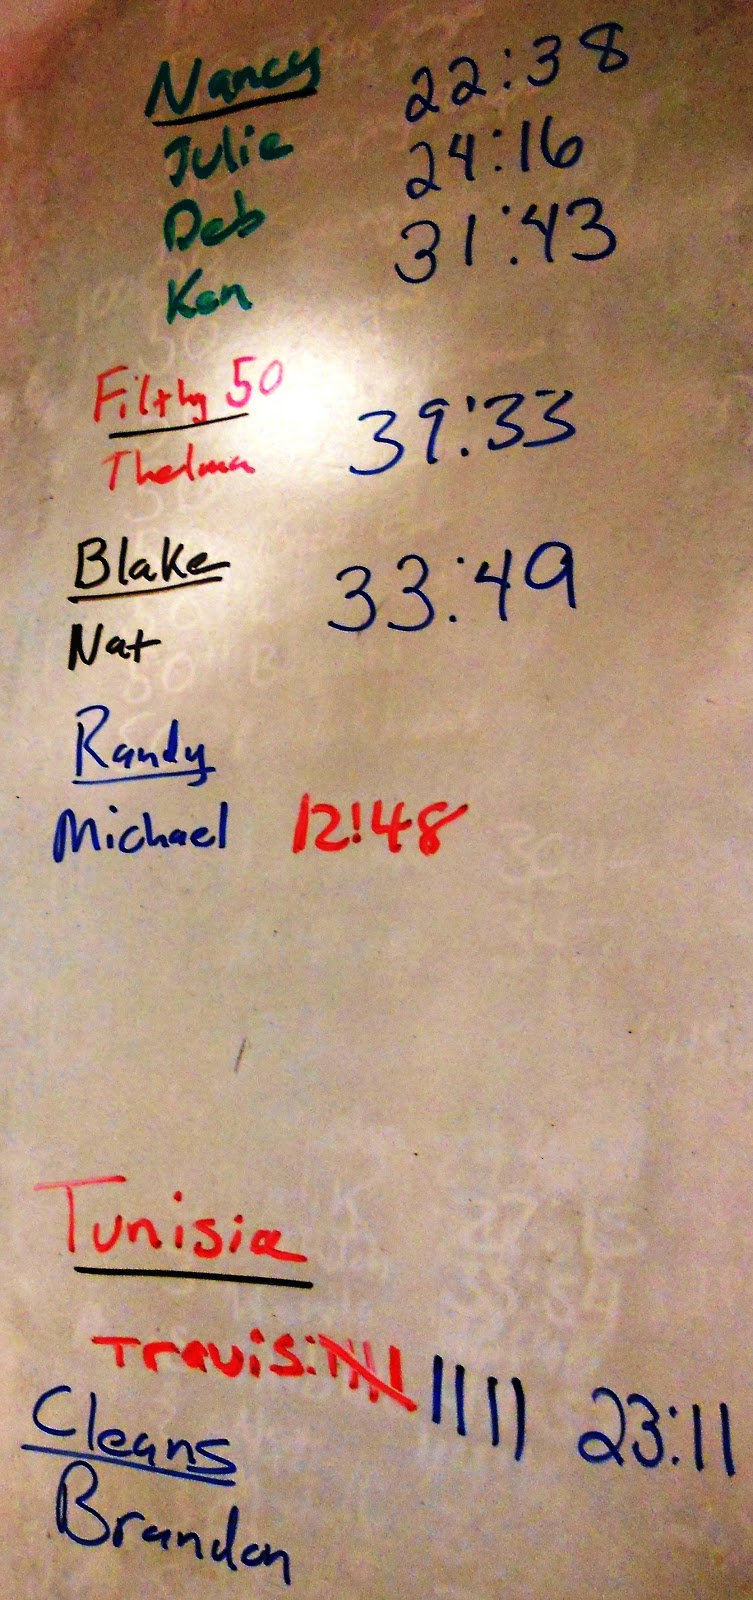 Nancy 22:38
Julie 24:16
Deb 31:43
Ken
Filthy 50
Thelma 39:33
Blake 33:49
Nat
Randy
Michael 12:48
Tunisia
Travis: 23:11
Cleans
Brandon